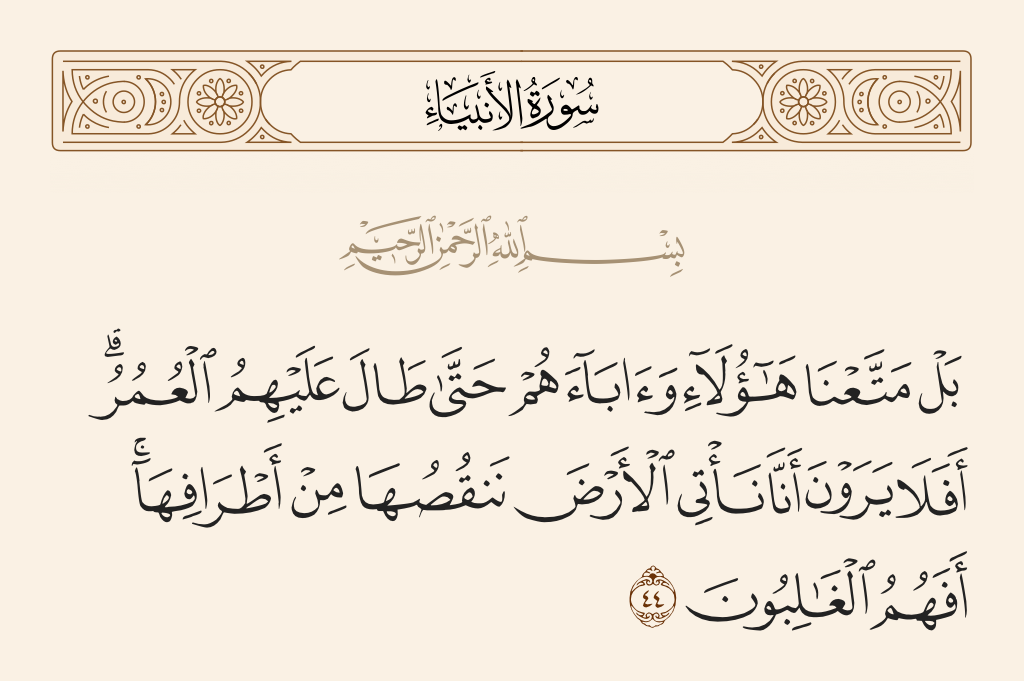 سُورَةُ الأَنبِيَاءِ
بِسْمِ ٱللَّهِ ٱلرَّحْمَٰنِ ٱلرَّحِيمِ
بَلْ مَتَّعْنَا هَـٰٓؤُلَآءِ وَءَابَآءَهُمْ حَتَّىٰ طَالَ عَلَيْهِمُ ٱلْعُمُرُ ۗ
أَفَلَا يَرَوْنَ أَنَّا نَأْتِى ٱلْأَرْضَ نَنقُصُهَا مِنْ أَطْرَافِهَآ ۚ
أَفَهُمُ ٱلْغَـٰلِبُونَ ٤٤